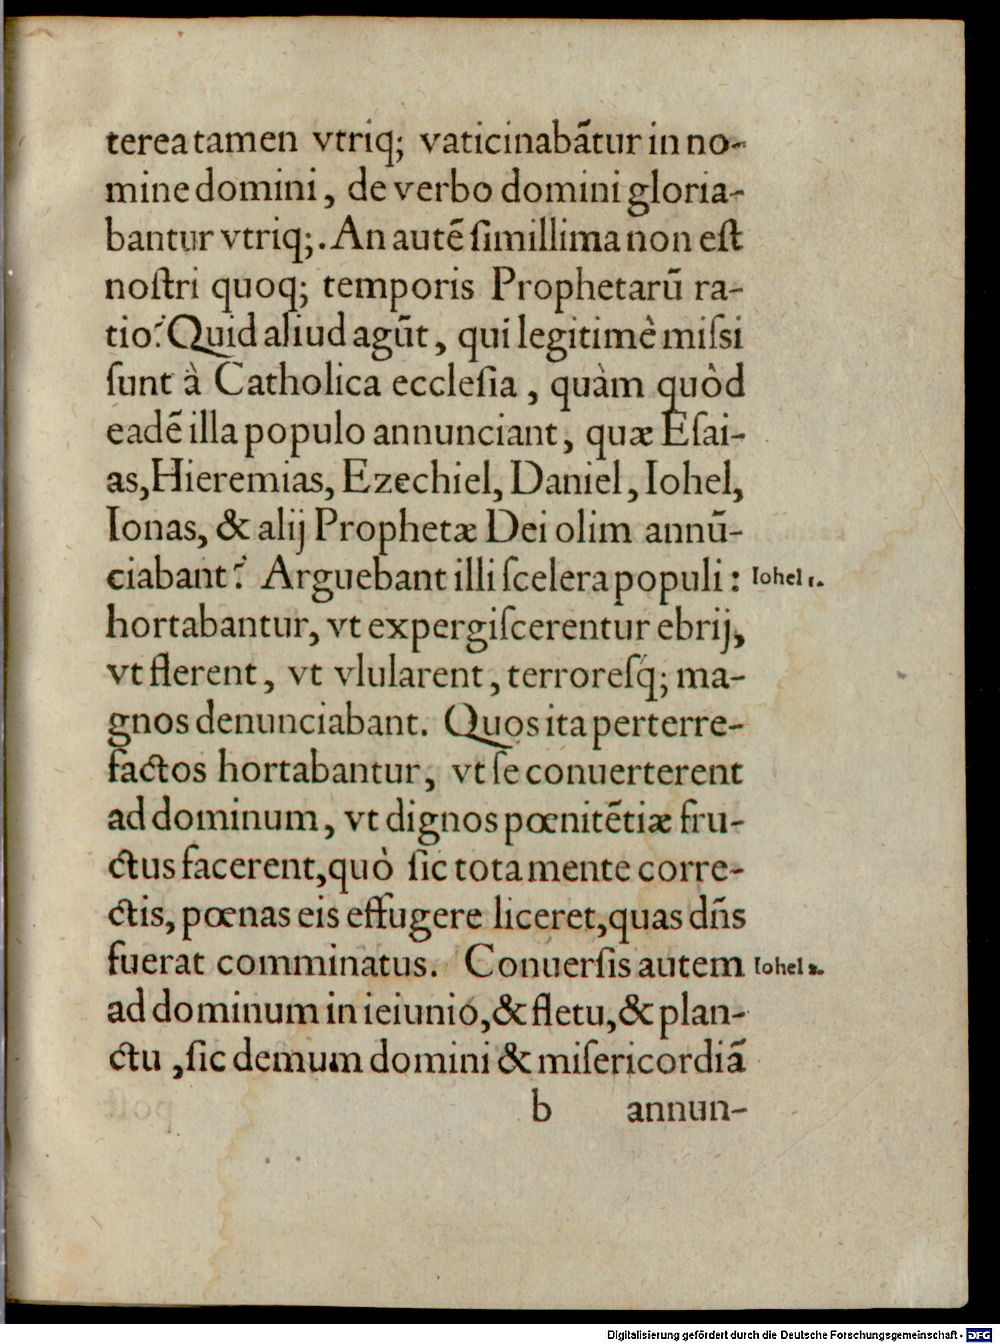 terea tamen vtriq; vaticinabãtur in no-
mine domini, de verbo domini gloria-
bantur vtriq;. An autẽ ſimillima non eſt
noſtri quoq; temporis Prophetarũ ra-
tio? Quid aliud agũt, qui legitimè miſsi
ſunt à Catholica eccleſia, quàm quòd
eadẽ illa populo annunciant, quæ Eſai-
as, Hieremias, Ezechiel, Daniel, Iohel,
Ionas, & alij Prophetæ Dei olim annũ-
ciabant? Arguebant illi ſcelera populi: Iohel 1.
hortabantur, vt expergiſcerentur ebrij,
vt flerent, vt vlularent, terroreſq́; ma-
gnos denunciabant. Quos ita perterre-
factos hortabantur, vt ſe conuerterent
ad dominum, vt dignos pœnitẽtiæ fru-
ctus facerent, quò ſic tota mente corre-
ctis, pœnas eis effugere liceret, quas dñs
fuerat comminatus. Conuerſis autem Iohel 2.
ad dominum in ieiunio, & fletu, & plan-
ctu, ſic demum domini & miſericordiã
b annun-
Digitalisierung gefördert durch die Deutsche Forschungsgemeinschaft - DFG